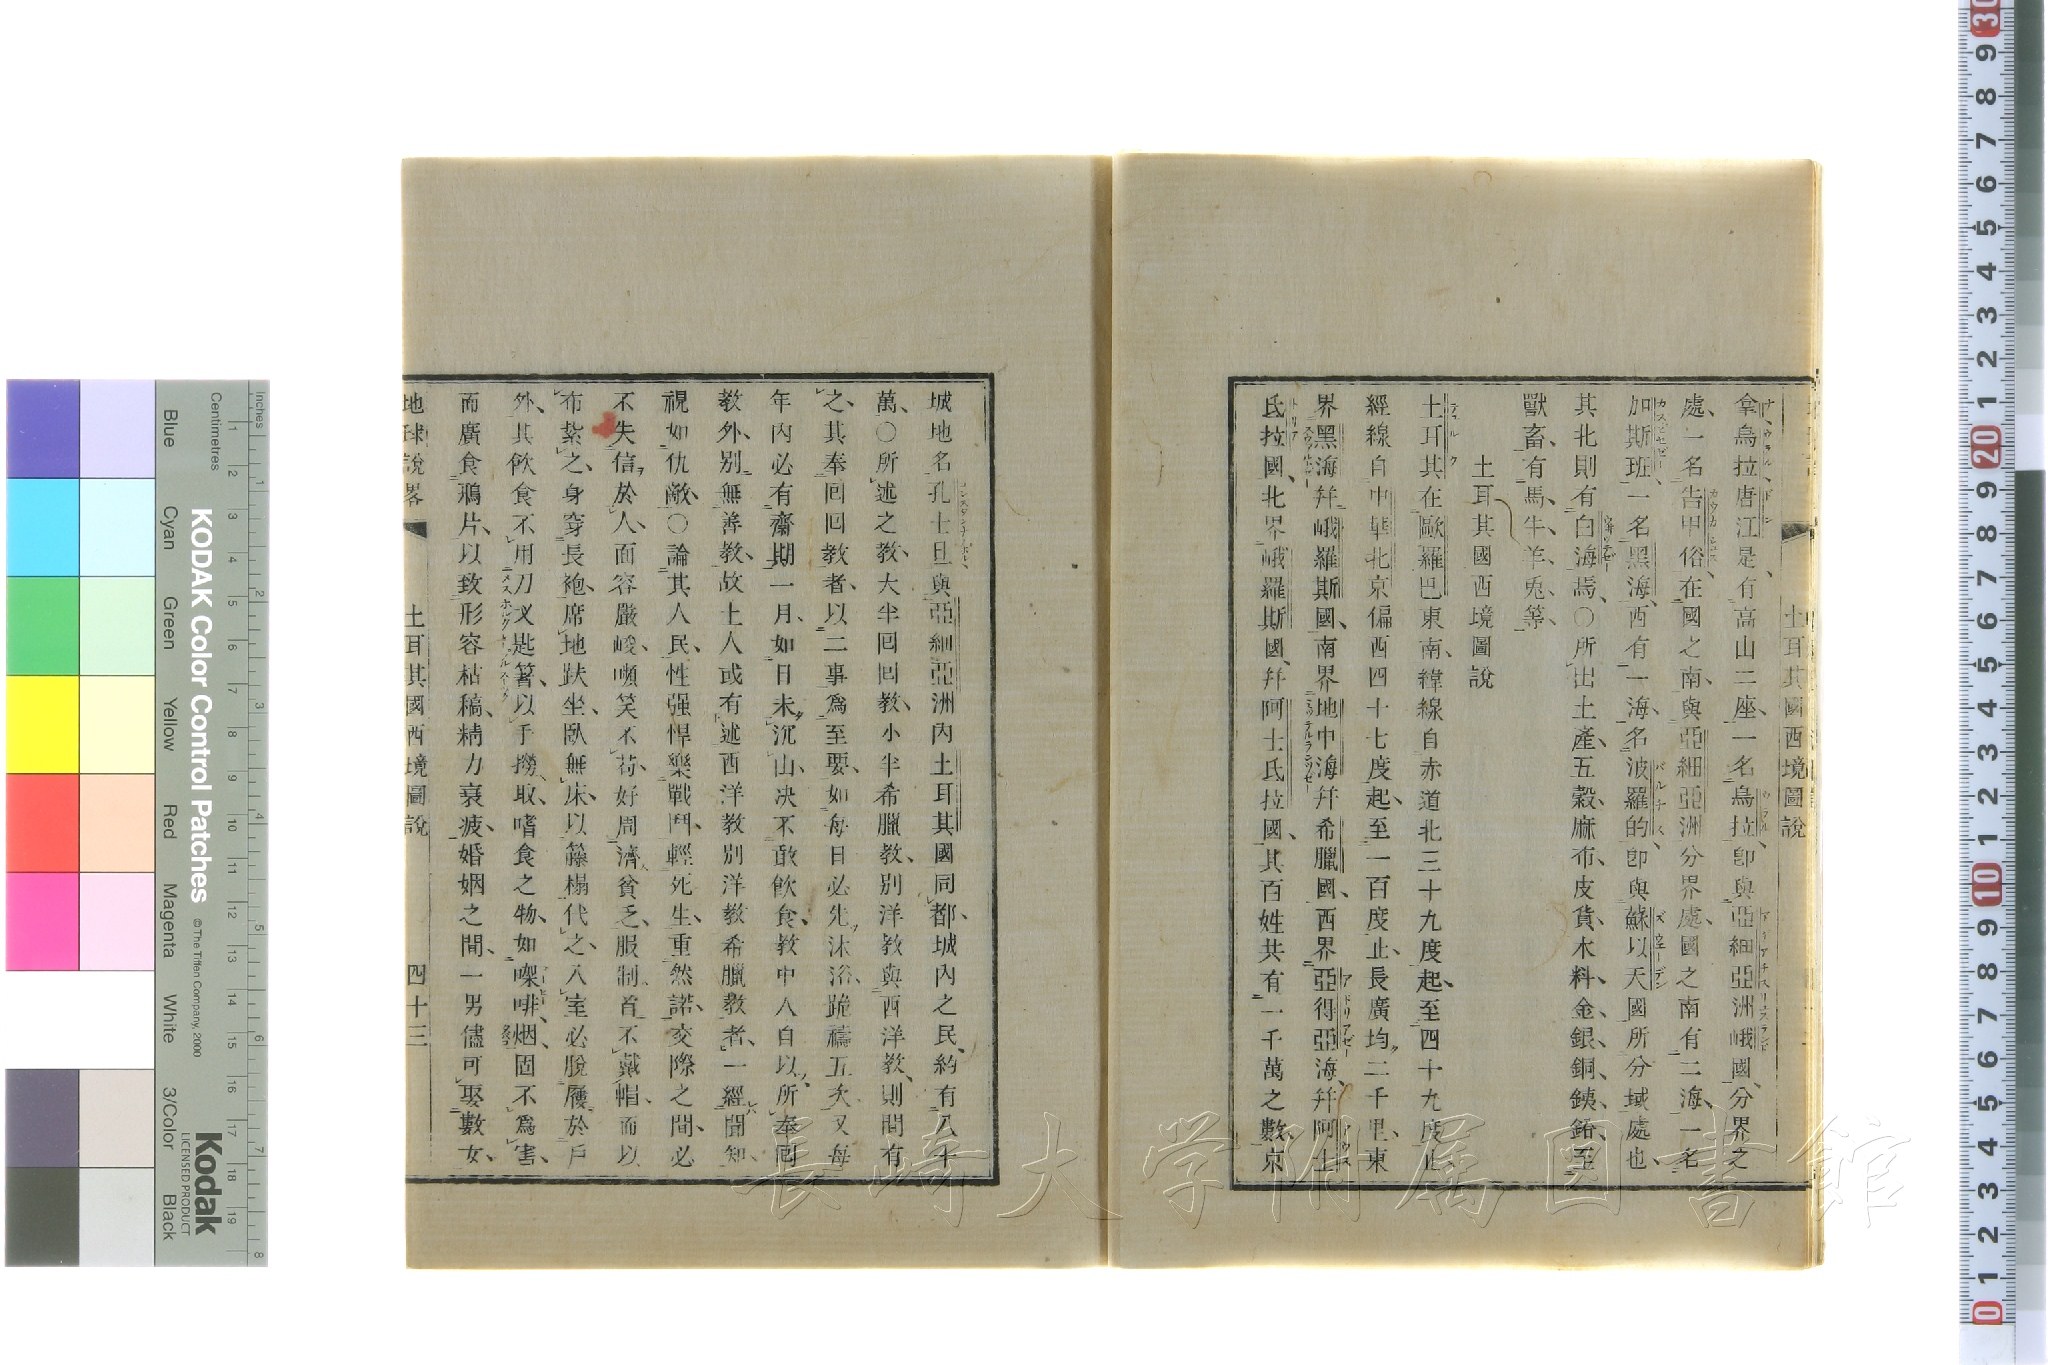 土耳其國西境圖說
拿烏拉唐江是有高山二座一名烏拉卽與亞細亞洲峨國分界之
處一名告甲俗在國之南與亞細亞洲分界處國之南有二海一名
加斯班一名黑海西有一海名波羅的卽與蘇以天國所分域處也
其北則有白海焉○所出土產五穀麻布皮貨木料金銀銅銕鉑至
獸畜有馬牛羊兎等
土耳其國西境圖說
土耳其在歐羅巴東南緯線自赤道北三十九度起至四十九度止
經線自中華北京偏西四十七度起至一百度止長廣均二千里東
界黑海幷峨羅斯國南界地中海幷希臘國西界亞得亞海幷阿士
氐拉國北界峨羅斯國幷阿士氐拉國其百姓共有一千萬之數京
城地名孔士旦與亞細亞洲內土耳其國同都城內之民約有八十
萬○所述之教大半回回教小半希臘教別洋教與西洋教則間有
之其奉回回教者以二事爲至要如每日必先沐浴跪禱五次又每
年內必有齋期一月如日未沉山决不敢飮食教中人自以所奉回
教外別無善教故土人或有述西洋教別洋教希臘教者一經聞知
視如仇敵○論其人民性强悍樂戰鬥輕死生重然諾交際之間必
不失信於人面容嚴峻嚬笑不苟好周濟貧乏服制首不戴帽而以
布紮之身穿長袍席地趺坐臥無床以籐榻代之入室必脫屨於戶
外其飮食不用刀叉匙箸以手撈取嗜食之物如㗎啡烟固不爲害
而廣食鴉片以致形容枯稿精力衰疲婚姻之間一男儘可娶數女
地球說畧 土耳其國西境圖說 四十三
長崎大学附属図書館
KODAK Color Control Patches
© The Tiffen Company, 2000
Kodak
LICENSED PRODUCT
Inches
Centimetres
Blue
Cyan
Green
Yellow
Red
Magenta
White
3/Color
Black